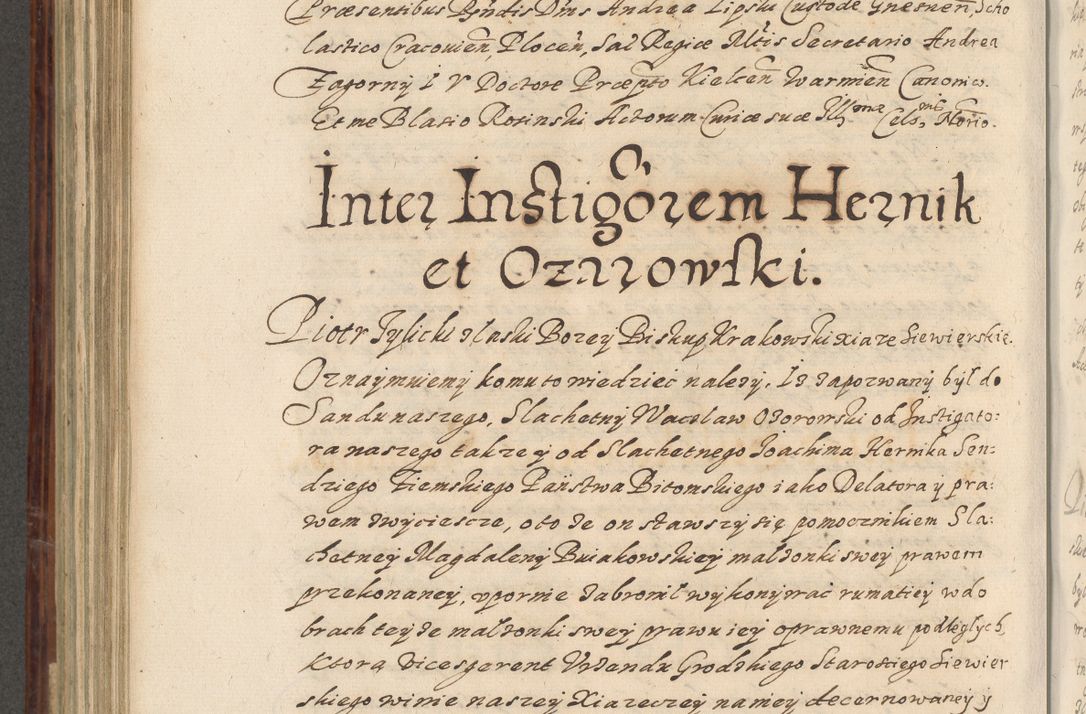 Præsentibus Rndis Dnis Andrea Lipski Custode Gnesnen, Scho
lastico Cracovien, Plocen, Sac Regiæ Mtis Secretario Andrea
Zagorny I V Doctore Præpto Kielcen Warmien Canonico.
Et me Blasio Rosinski Actorum Curiæ suæ Illmæ Cels: Norio.
Inter Instigorem Hernik
et Ozarowski.
Piotr Tylicki z laski Bozey Biskup Krakowski xiaze Siewierskie.
Oznaymuiemy komu to wiedziec nalezy, Iz zapozwany był do
Sandu naszego, Slachetny Wacław Ozorowski od Instigato:
ra naszego takze y od Slachetnego Joachima Hernika Sen:
dziego Ziemskiego Państwa Bitomskiego iako Delatora y pra:
wem zwyciescze, oto ze on stawszy się pomocznikiem Sla:
chetney Magdaleny Buiakowskiey malzonki swey prawem
przekonaney, upornie zabronil wykonywać rumatiey w do
brach teyze malzonki swey prawu iey oprawnemu podległych,
Ktora Vicesgerent Urzandu Grodzkiego Starostiego Siewier
skiego w imie naszey Xiazeczey na niey decernowaney y